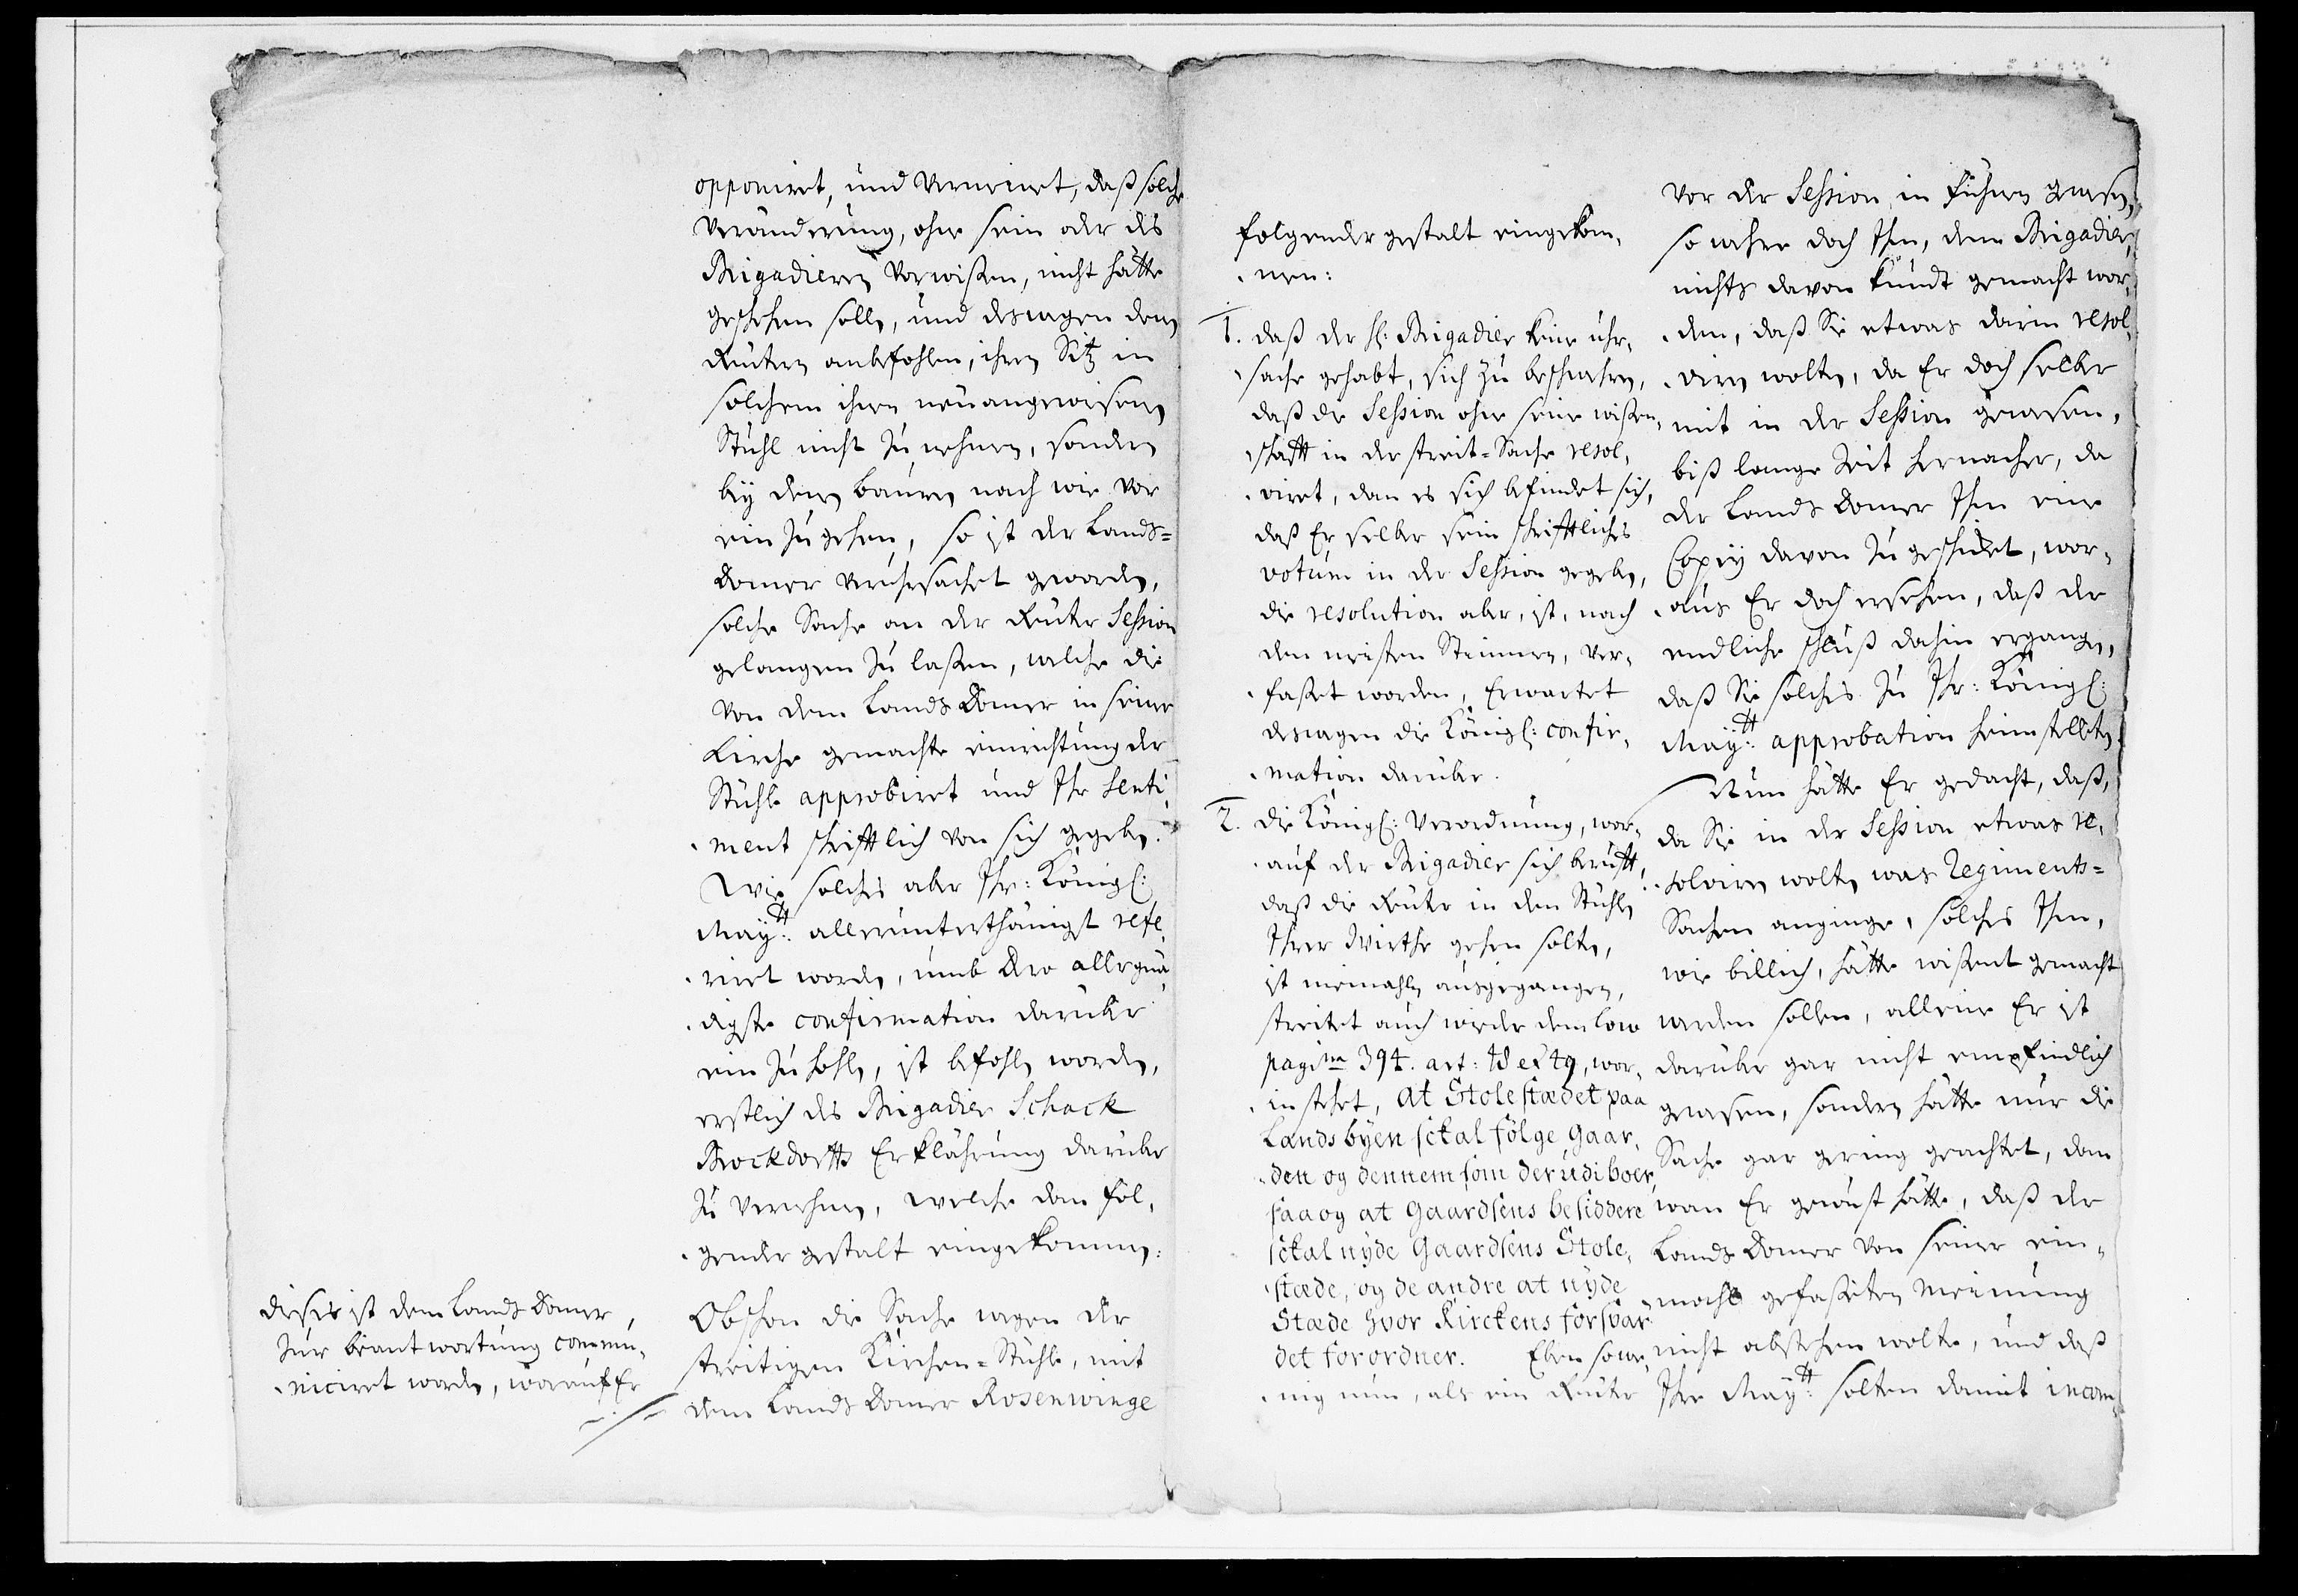 opponiret, und vermeinet, daß solche
Veränderung, ohne sein oder des
Brigadieren Vorwißen, nicht hätte
geschehen sollen, und deswegen den
Reutern anbefohlen, ihren Sitz in
solchem ihren neuangewiesenen
Stuhl nicht zu nehmen, sondern
bey den bauren nach wie vor
ein zu gehen, so ist der Lands-
Domer veruhrsachet geworden,
solche Sache an der Reuter Session
gelangen zu laßen, welche die
von dem Lands Domer in seiner
Kirche gemachte einrichtung der
Stühle approbiret und Ihr senti,
ment schrifftlich von sich gegeben.
Wie solches aber Ihr: Königl:
Maÿtt: allerunterthänigst refe,
riret worden, umb Dero allergnä,
digste confirmation darüber
ein zu hohlen, ist befohlen worden,
erstlich des Brigadier Schack
Brockdorffs Erklährung darüber
zu vernehmen, welche dan fol,
gender gestalt eingekommen:
Obschon die Sache wegen der
streitigen Kirchen-Stühle, mit
dem Lands Domer Rosenwinge
dieses ist dem Lands Domer,
zur beantwortung commu,
niciret worden, worauf Er
folgender gestalt eingekom,
men:
1. daß der H: Brigadier keine uhr,
sache gehabt, sich zu beschweren,
daß die Session ohne seine wißen,
schafft in der streit-Sache resol,
viret, dan es sich befindet sich,
daß Er selber sein schrifftliches
votum in der Session gegeben,
die resolution aber, ist, nach
den meisten Stimmen, ver,
faßet worden, Erwartet
deswegen die Königl: confir,
mation darüber.
2. die Königl: Verordnung, wor,
auf der Brigadier sich berufft,
daß die Reuter in den Stühlen
Ihrer Wirthe gehen solten,
ist niemahlen ausgegangen,
streitet auch wieder dem low
pagina 394. art: 48 et 49, wor,
in stehet, At Stolestædet paa
Landsbyen skal fölge gaar,
den og dennem som der udi boer,
saa og at Gaardsens besiddere
skal nyde Gaardsens Stole,
stæde, og de andre at nyde
Stæde hvor Kirckens forsvar
det forordner. Eben so we,
nig nun, als ein Reuter
vor der Session, in führen gewesen,
so wehre doch Ihm, dem Brigadier,
nichts davon kundt gemacht wor,
den, daß Sie etwas darin resol,
viren wolten, da Er doch selber
mit in der Session gewesen,
biß lange Zeit hernacher, da
der Lands Domer Ihm eine
Copeÿ davon zu geschicket, wor,
aus Er doch ersehen, daß der
endliche schluß dahin ergangen,
daß Sie solches zu Ihr: Königl:
Maÿtt: approbation heimstelleten.
Nun hätte Er gedacht, daß,
da Sie in der Session etwas re,
solviren wolten was Regiments-
Sachen anginge, solches Ihm,
wie billich, hätte wißent gemacht
werden sollen, alleine Er ist
darüber gar nicht empfindlich
gewesen, sondern hätte nur die
Sache gar gering geachtet, dan
wan Er gewust hätte, daß der
Lands Domer von seiner ein,
mahl gefaßeten Meinung
nicht abstehen wolte, und daß
Ihre Maÿtt: solten damit incom,